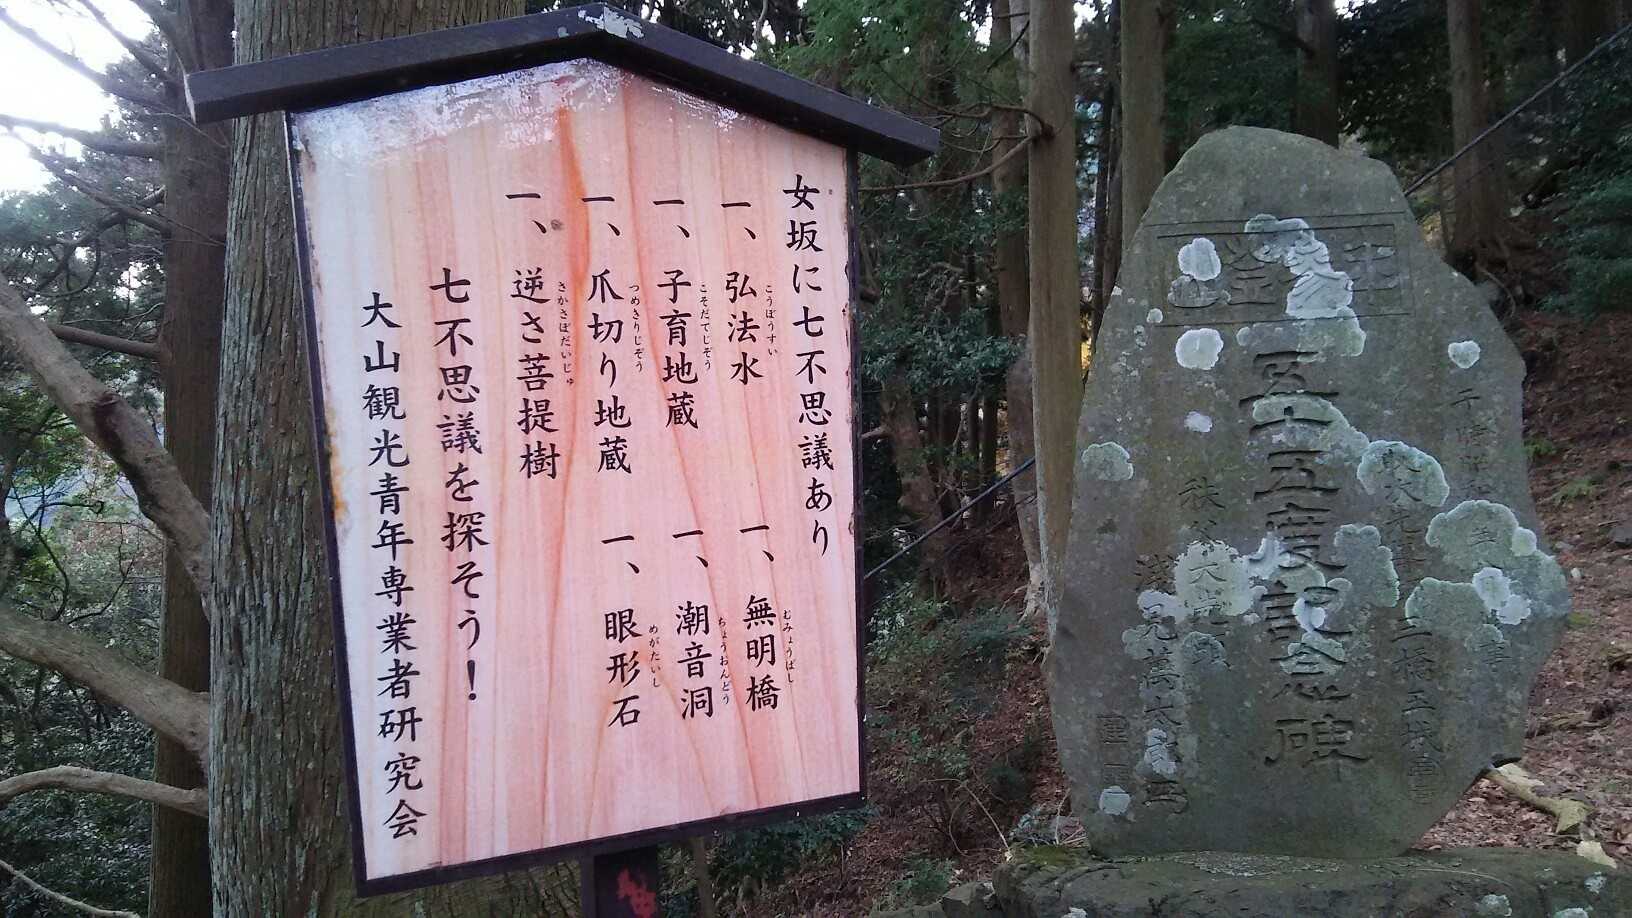 女坂に七不思議あり
一、弘法水
こうぼうすい
一、子育地蔵
こそだてじぞう
一、爪切り地蔵
つめきりじぞう
一、逆さ菩提樹
さかさぼだいじゅ
一、無明橋
むみょうばし
一、潮音洞
ちょうおんどう
一、眼形石
めがたいし
七不思議を探そう！
大山観光青年専業者研究会
登山
五十五度記念碑